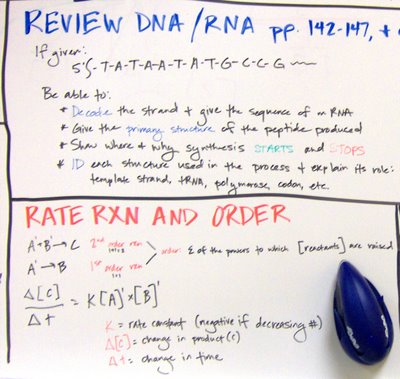 REVIEW DNA/RNA pp. 142-147, +
If given:
5' - T-A-T-A-A-T-A-T-G-C-C-G
Be able to:
* Decode the strand + give the sequence of mRNA
* Give the primary structure of the peptide produced
* Show where + why synthesis STARTS and STOPS
* ID each structure used in the process + explain its role:
template strand, tRNA, polymerase, codon, etc.
RATE RXN AND ORDER
A¹+B¹→C 2nd order rxn
1+1=2
A¹→B 1st order rxn
1=1
order: Σ of the powers to which [reactants] are raised
Δ[C] / Δt = K[A]¹×[B]¹
K = rate constant (negative if decreasing #)
Δ[C] = change in product (C)
Δt = change in time